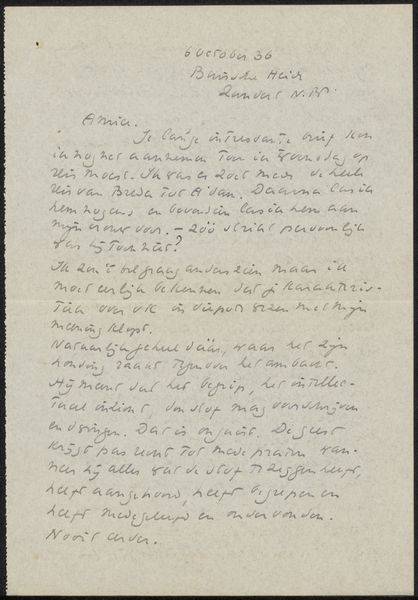 6 october 36
Bansche Heide
Zundert N.Br.
Amice.
Je lange interessante brief kon
ik nog net aannemen toen ik Woensdag op
reis moest. Ik was er zoet mede de heele
reis van Breda tot A'dam. Daarna las ik
hem nog eens en bovendien las ik hem aan
mijn vrouw voor. - zóó strikt persoonlijk
was hij toch niet?
Ik zou 't heel graag anders zien maar ik
moet eerlijk bekennen dat je karakteris-
tiek van v.K. in diepste wezen met mijn
meening klopt.
Natuurlijk geheel dáár, waar het zijn
houding raakt tegenover het ambacht.
Hij meent dat het begrip, het intellec-
taal inzicht, de stof mag voorschrijven
en dwingen. Dat is onjuist. De geest
krijgt pas recht tot mede praten wan-
neer hij alles wat de stof te zeggen heeft,
heeft aangehoord, heeft begrepen en
heeft medegeleefd en ondervonden.
Nooit eerder.